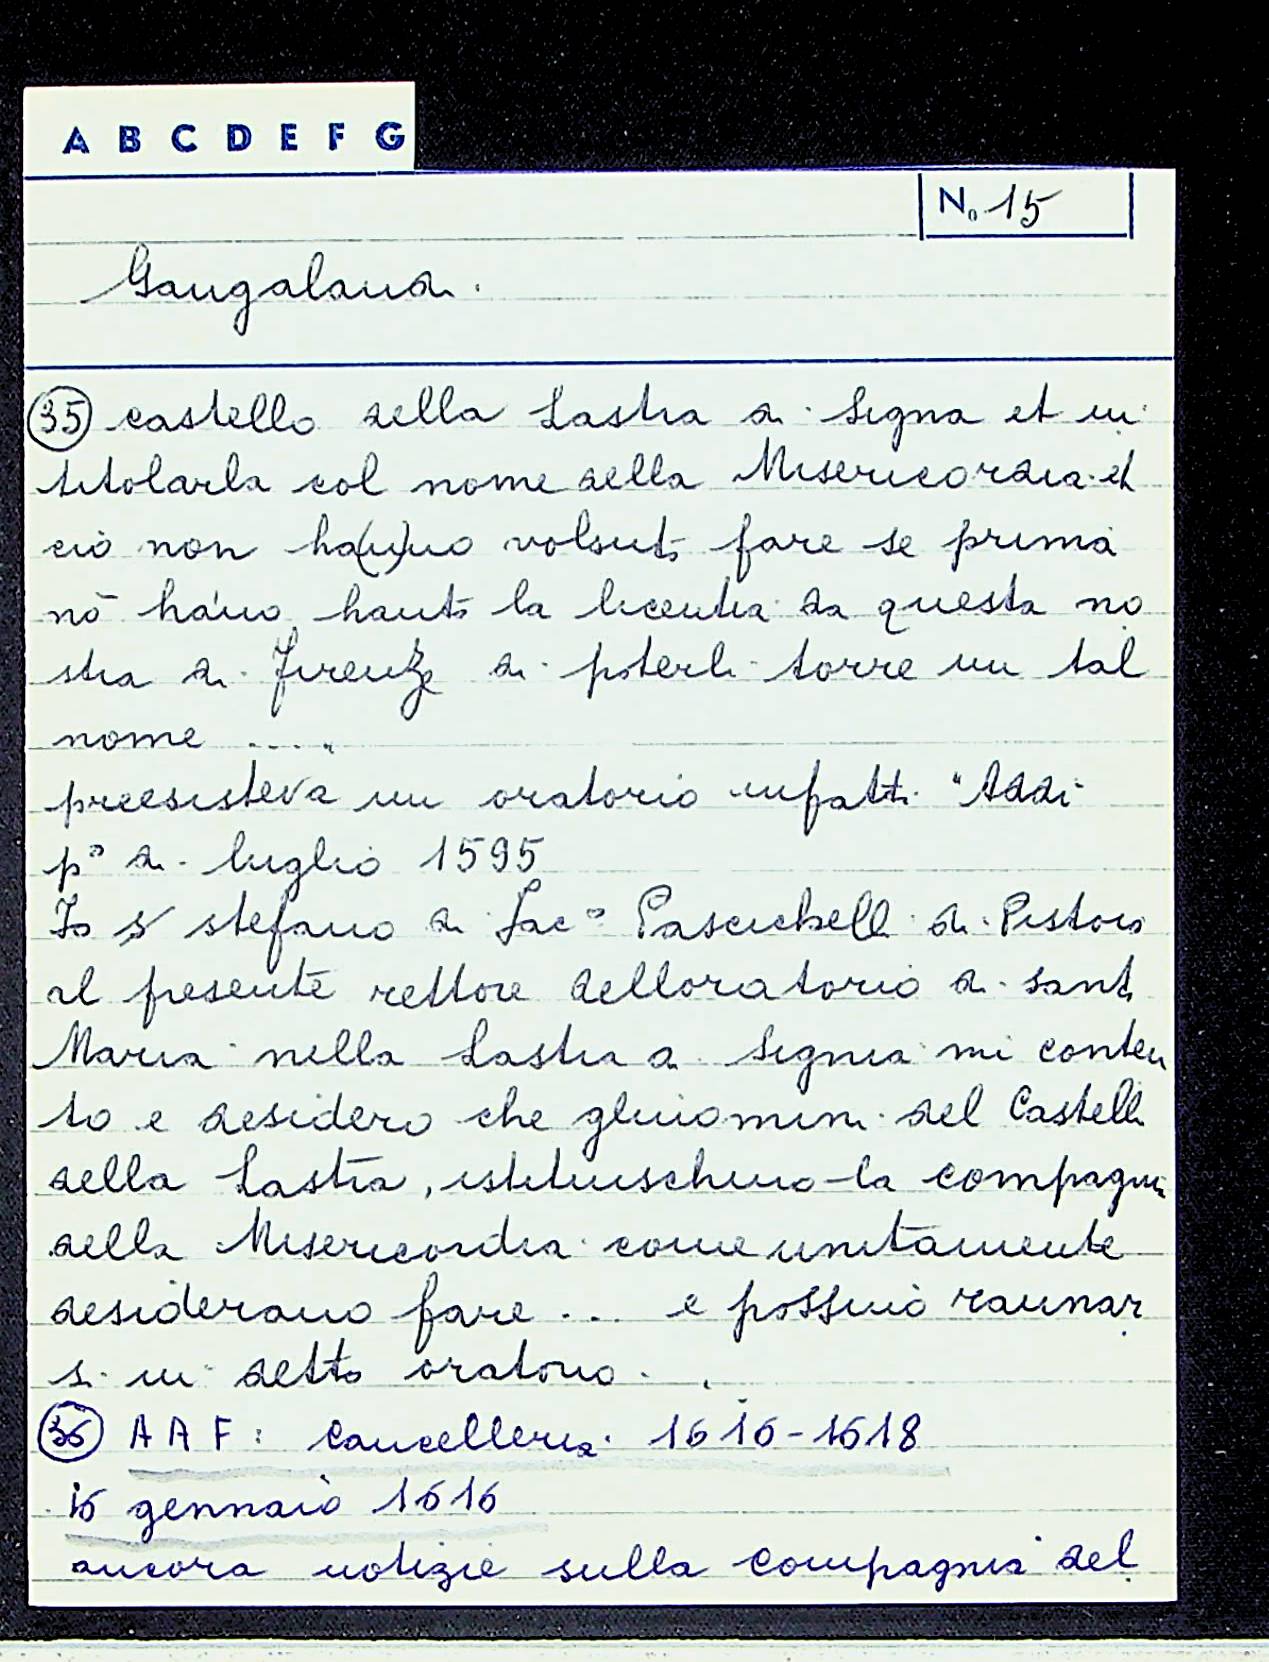 A B C D E F G
No 15
Gangalandi.
35 castello della Lastra a Signa et in
titolarla col nome della Misericordia et
ciò non ha(n)no volsuto fare se prima
nō hāno hauto la licentia da questa no
stra di Firenze di poterli torre un tal
nome ...."
preesisteva un oratorio infatti "Addi
p° di luglio 1595
Io stefano di Jac° di Pistoia
al presente rettore delloratorio di santa
Maria nella Lastra a Signia mi conten
to e desidero che gluiomini del Castello
della Lastra, istituischino la compagnia
della Misericordia come unitamente
desiderano fare ... e possino raunar
si in detto oratorio.
36 A A F: Cancelleria 1616-1618
16 gennaio 1616
ancora notizie sulla compagnia del